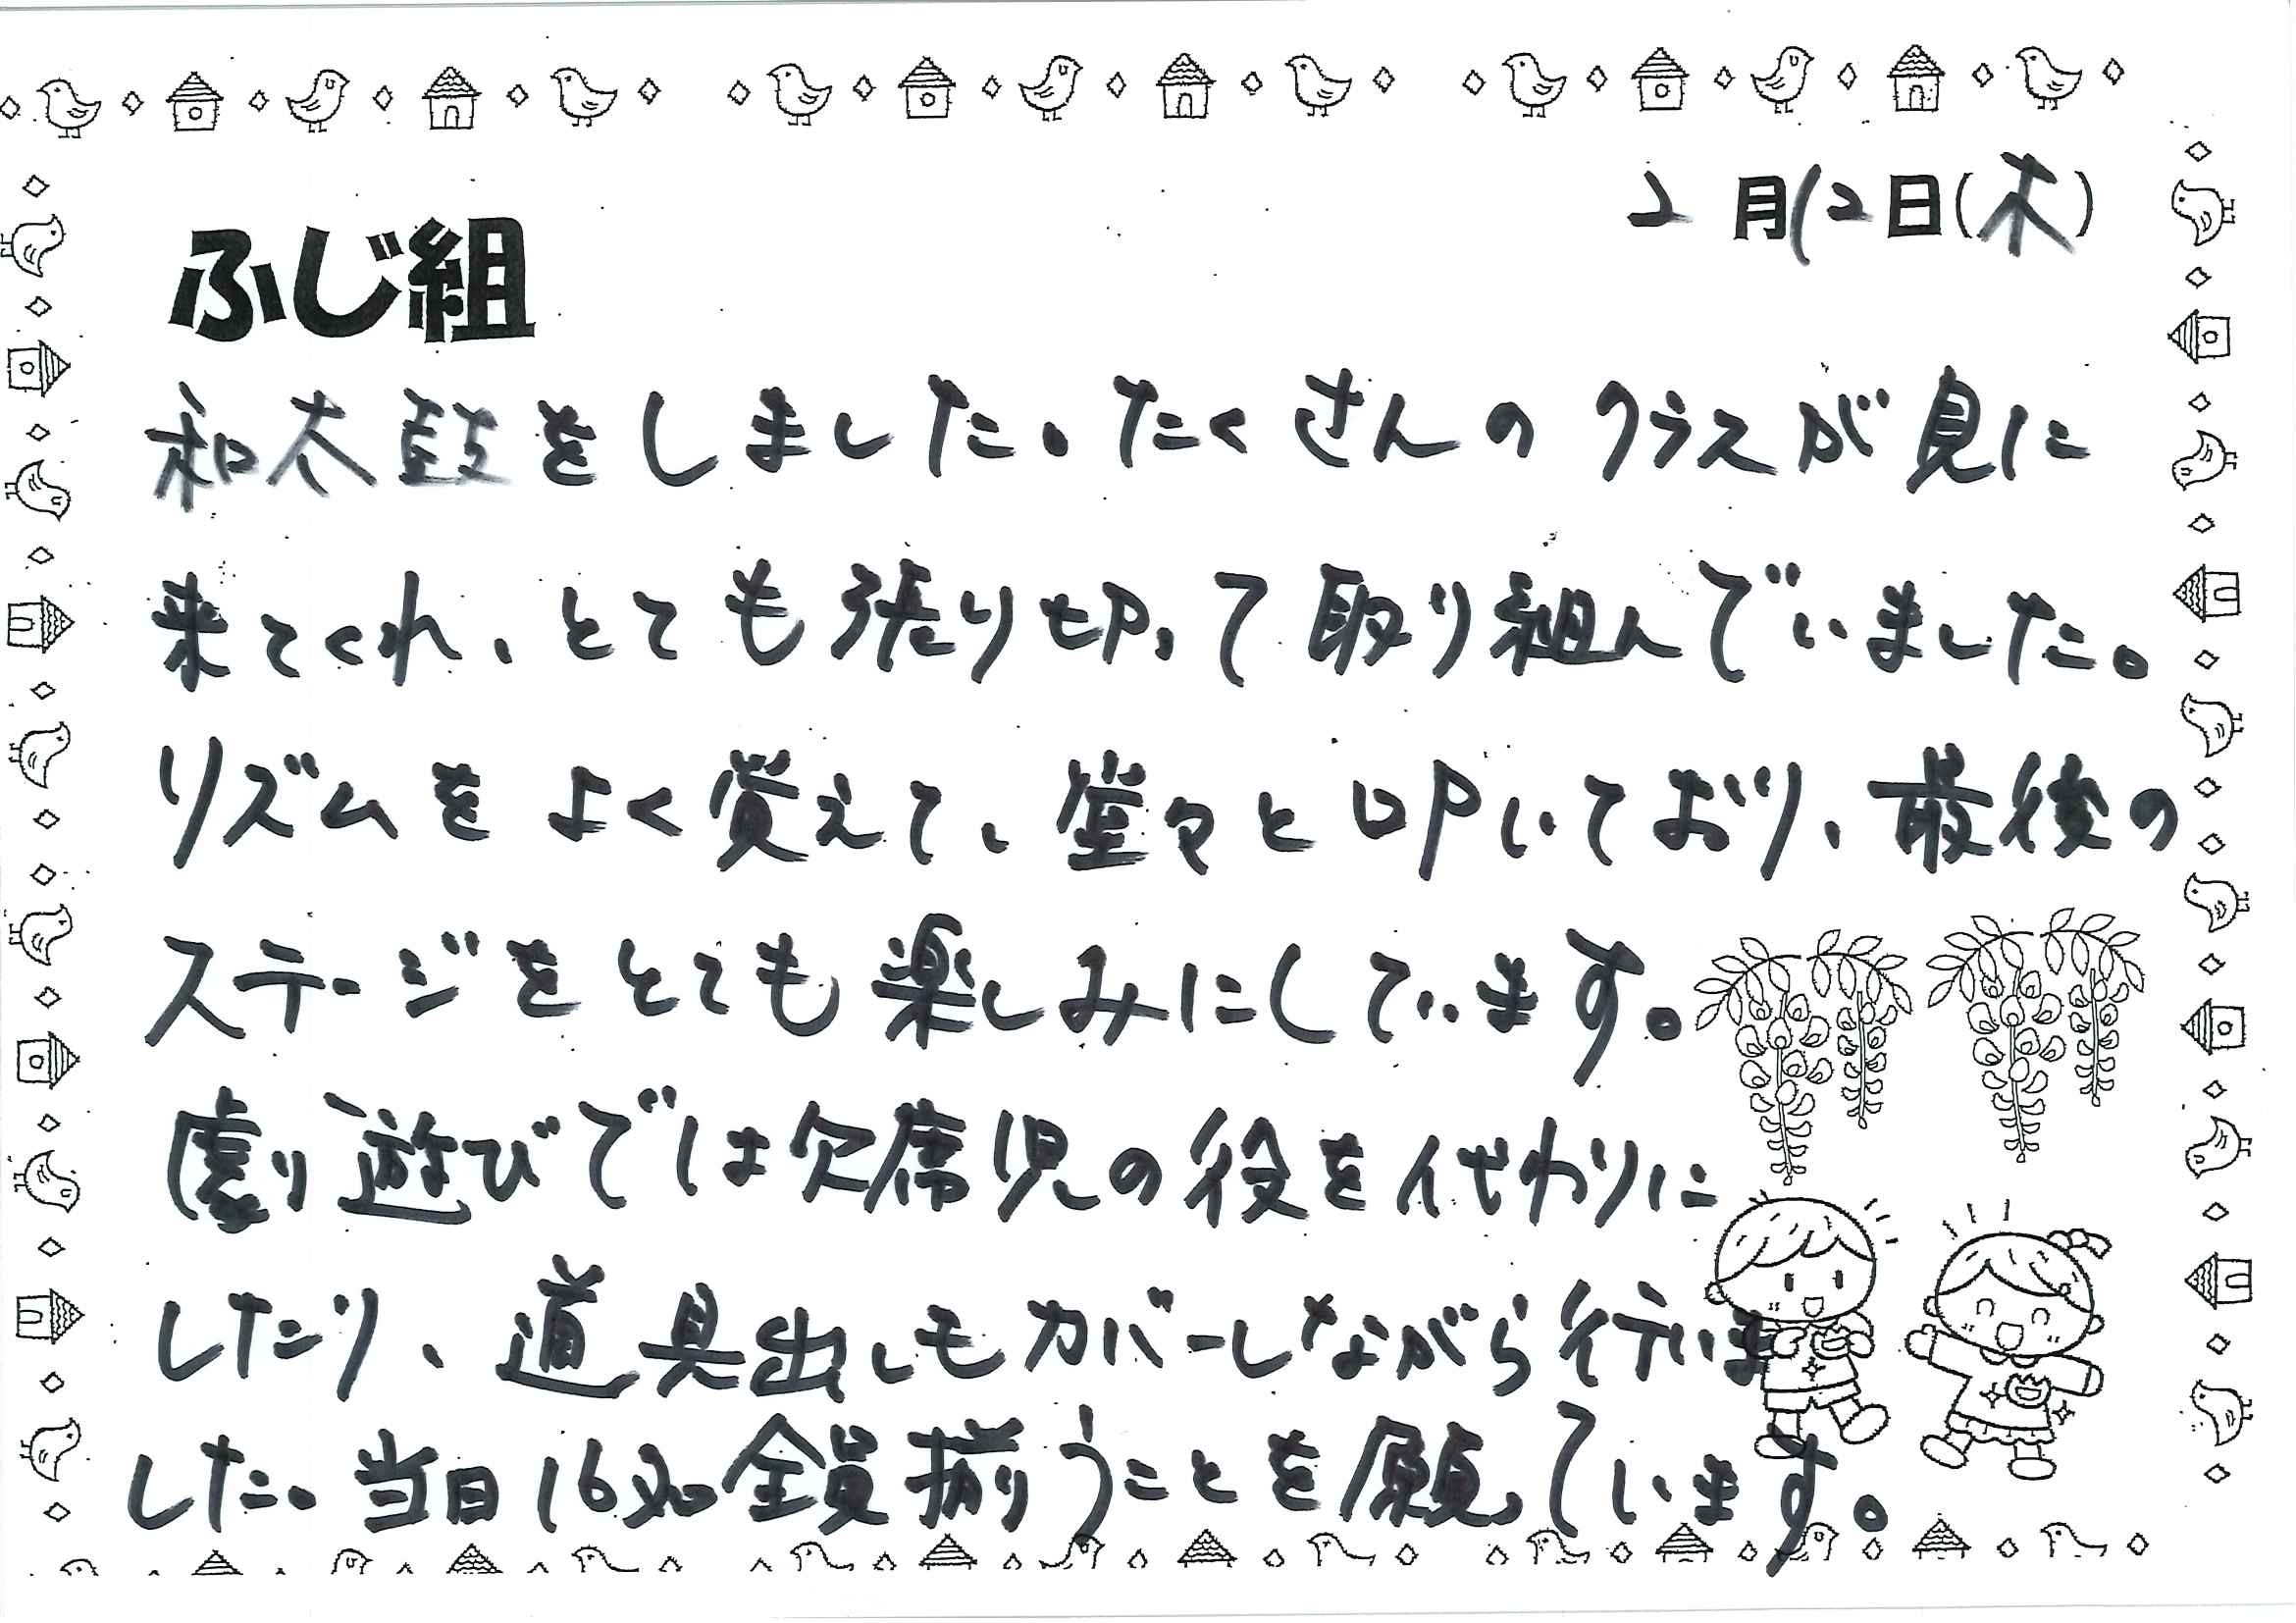 2月12日(木)
ふじ組
和太鼓をしました。たくさんのクラスが見に
来てくれ、とても張り切って取り組んでいました。
リズムをよく覚えて、堂々と叩いており、最後の
ステージをとても楽しみにしています。
劇遊びでは欠席児の役を代わりに
したり、道具出しもカバーしながら行いま
した。当日16名全員揃うことを願っています。